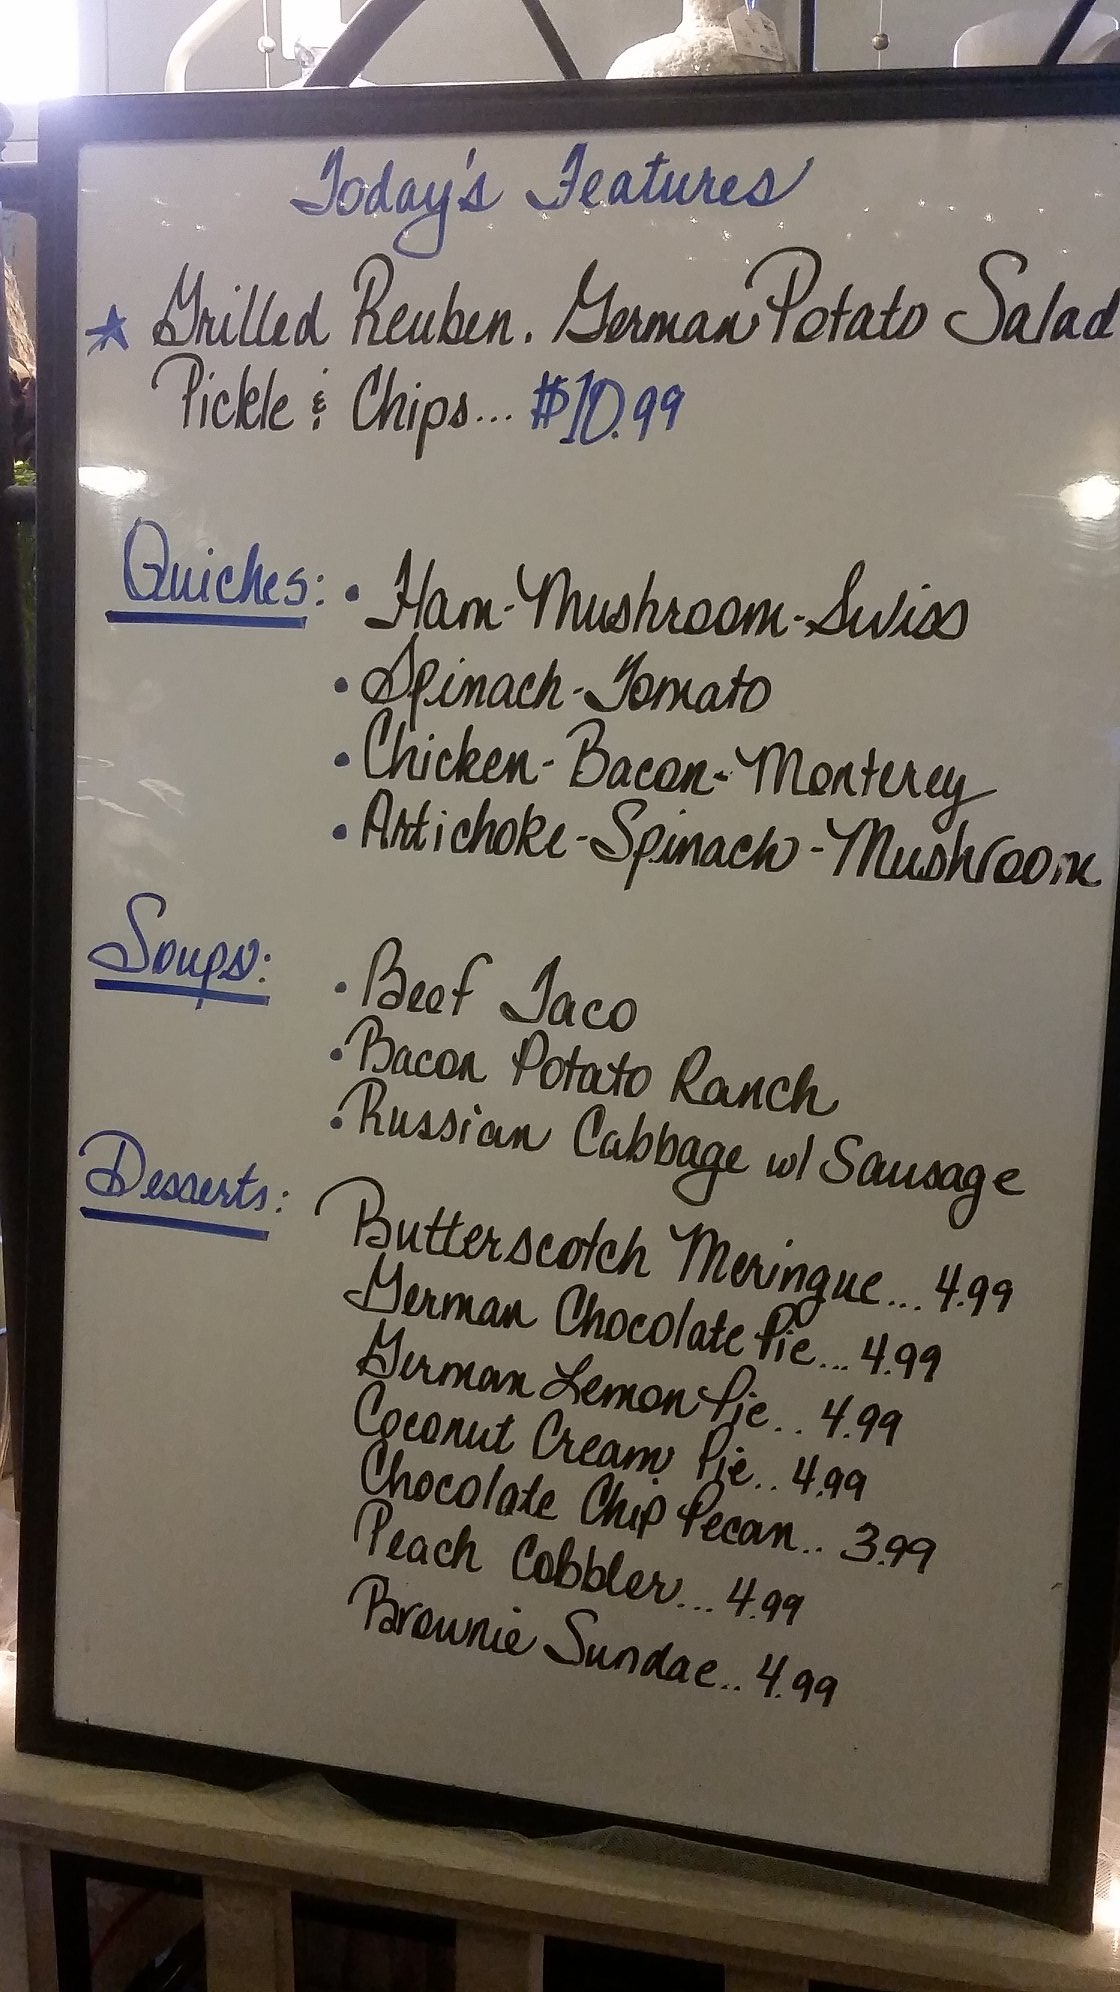 Today's Features
★ Grilled Reuben. German Potato Salad
Pickle & Chips... $10.99
Quiches: • Ham-Mushroom-Swiss
• Spinach-Tomato
• Chicken-Bacon-Monterey
• Artichoke-Spinach-Mushroom
Soups: • Beef Taco
• Bacon Potato Ranch
• Russian Cabbage w/ Sausage
Desserts: Butterscotch Meringue... 4.99
German Chocolate Pie... 4.99
German Lemon Pie... 4.99
Coconut Cream Pie.. 4.99
Chocolate Chip Pecan.. 3.99
Peach Cobbler... 4.99
Brownie Sundae.. 4.99